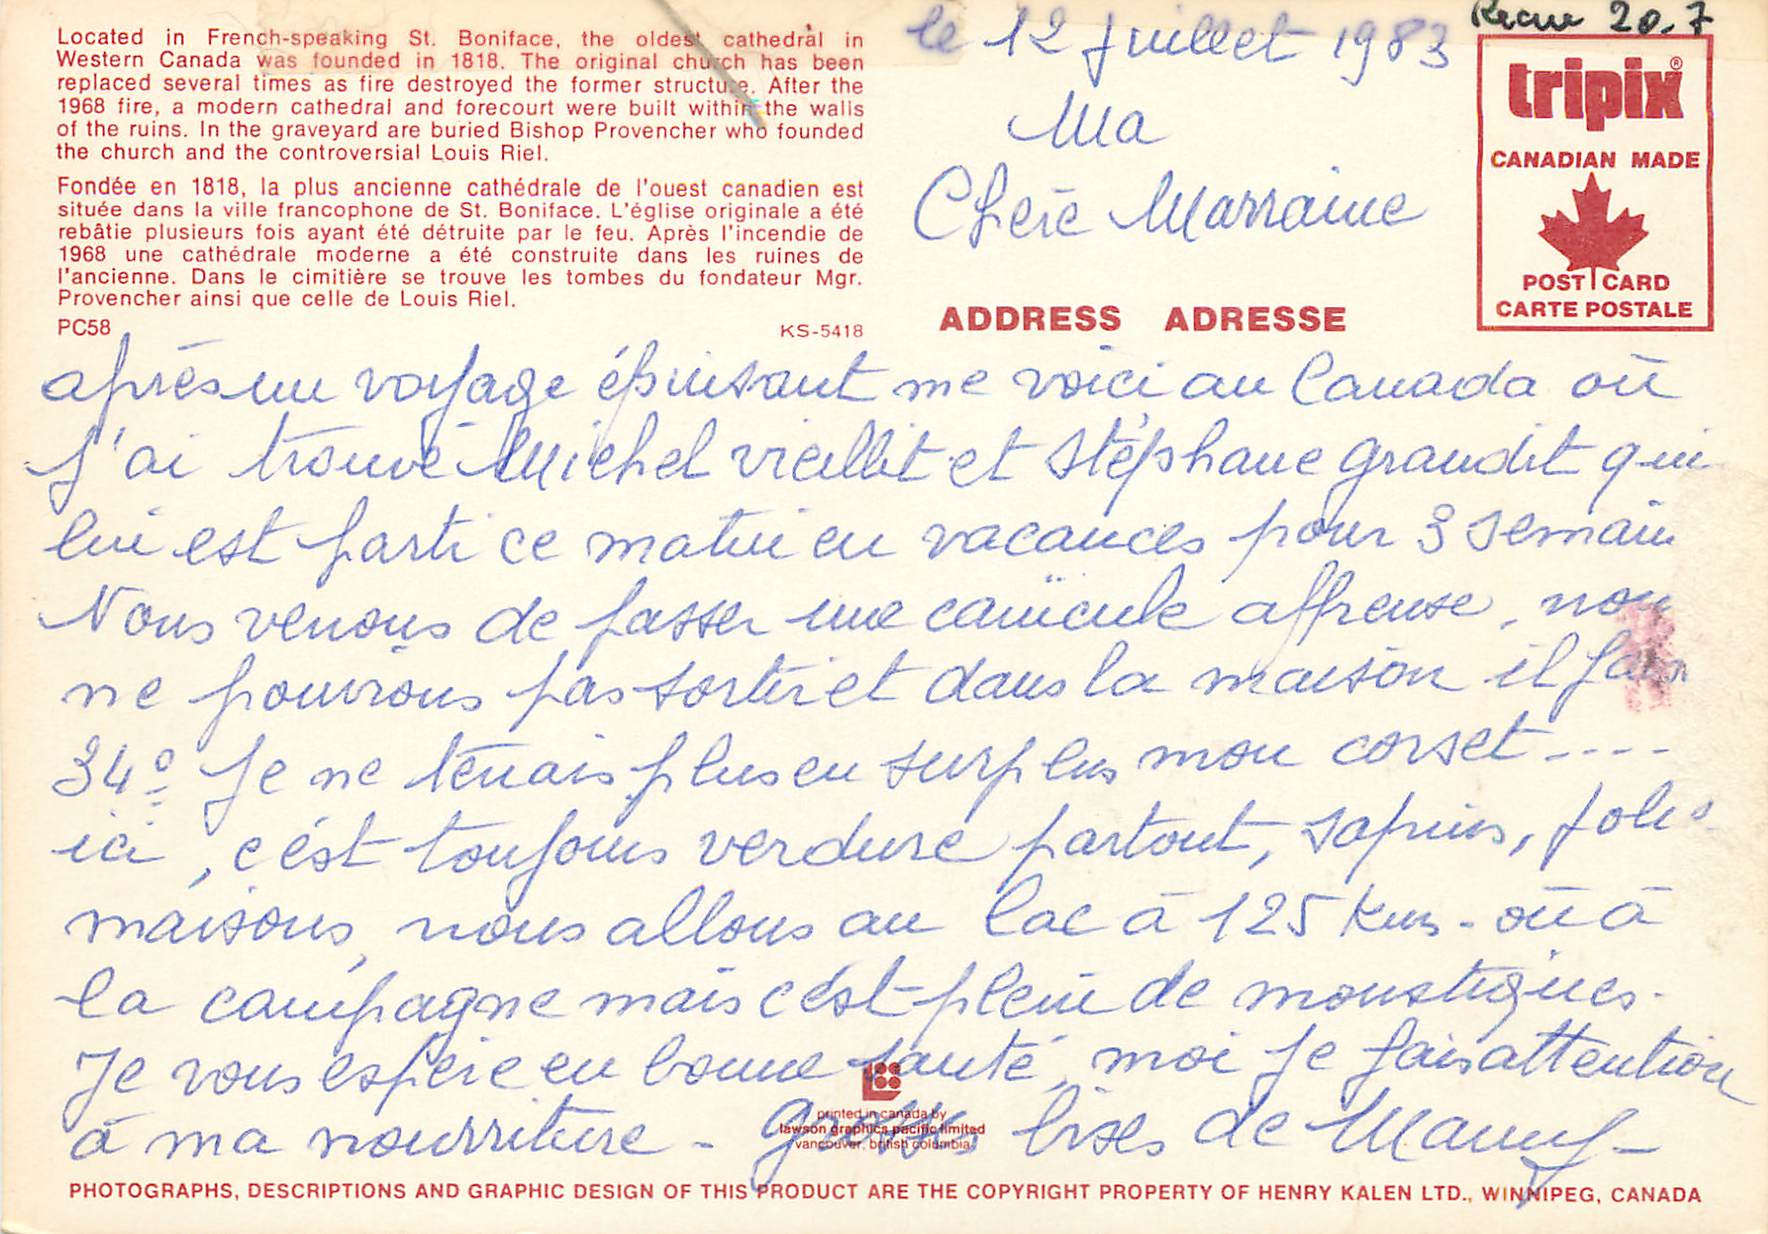 Located in French-speaking St. Boniface, the oldest cathedral in
Western Canada was founded in 1818. The original church has been
replaced several times as fire destroyed the former structure. After the
1968 fire, a modern cathedral and forecourt were built within the walls
of the ruins. In the graveyard are buried Bishop Provencher who founded
the church and the controversial Louis Riel.
Fondée en 1818, la plus ancienne cathédrale de l'ouest canadien est
située dans la ville francophone de St. Boniface. L'église originale a été
rebâtie plusieurs fois ayant été détruite par le feu. Après l'incendie de
1968 une cathédrale moderne a été construite dans les ruines de
l'ancienne. Dans le cimitière se trouve les tombes du fondateur Mgr.
Provencher ainsi que celle de Louis Riel.
PC58
KS-5418
le 12 Juillet 1983
Recue 20.7
Ma
Chère Marraine
tripix®
CANADIAN MADE
POST CARD
CARTE POSTALE
ADDRESS ADRESSE
après un voyage épuisant me voici au Canada où
j'ai trouvé Michel vieillit et Stéphane grandit qui
lui est parti ce matin en vacances pour 3 semain
Nous venons de passer une canicule affreuse, nou
ne pouvions pas sortir et dans la maison il fais
34° Je ne tenais plus en surplus mon corset ----
ici, c'est toujours verdure partout, sapins, jolies
maisons, nous allons au lac à 125 Kms - où à
la campagne mais c'est plein de moustiques.
Je vous espère en bonne santé, moi je fais attention
à ma nourriture - Grosses bises de Mamy -
printed in canada by
lawson graphics pacific limited
vancouver, british columbia
PHOTOGRAPHS, DESCRIPTIONS AND GRAPHIC DESIGN OF THIS PRODUCT ARE THE COPYRIGHT PROPERTY OF HENRY KALEN LTD., WINNIPEG, CANADA